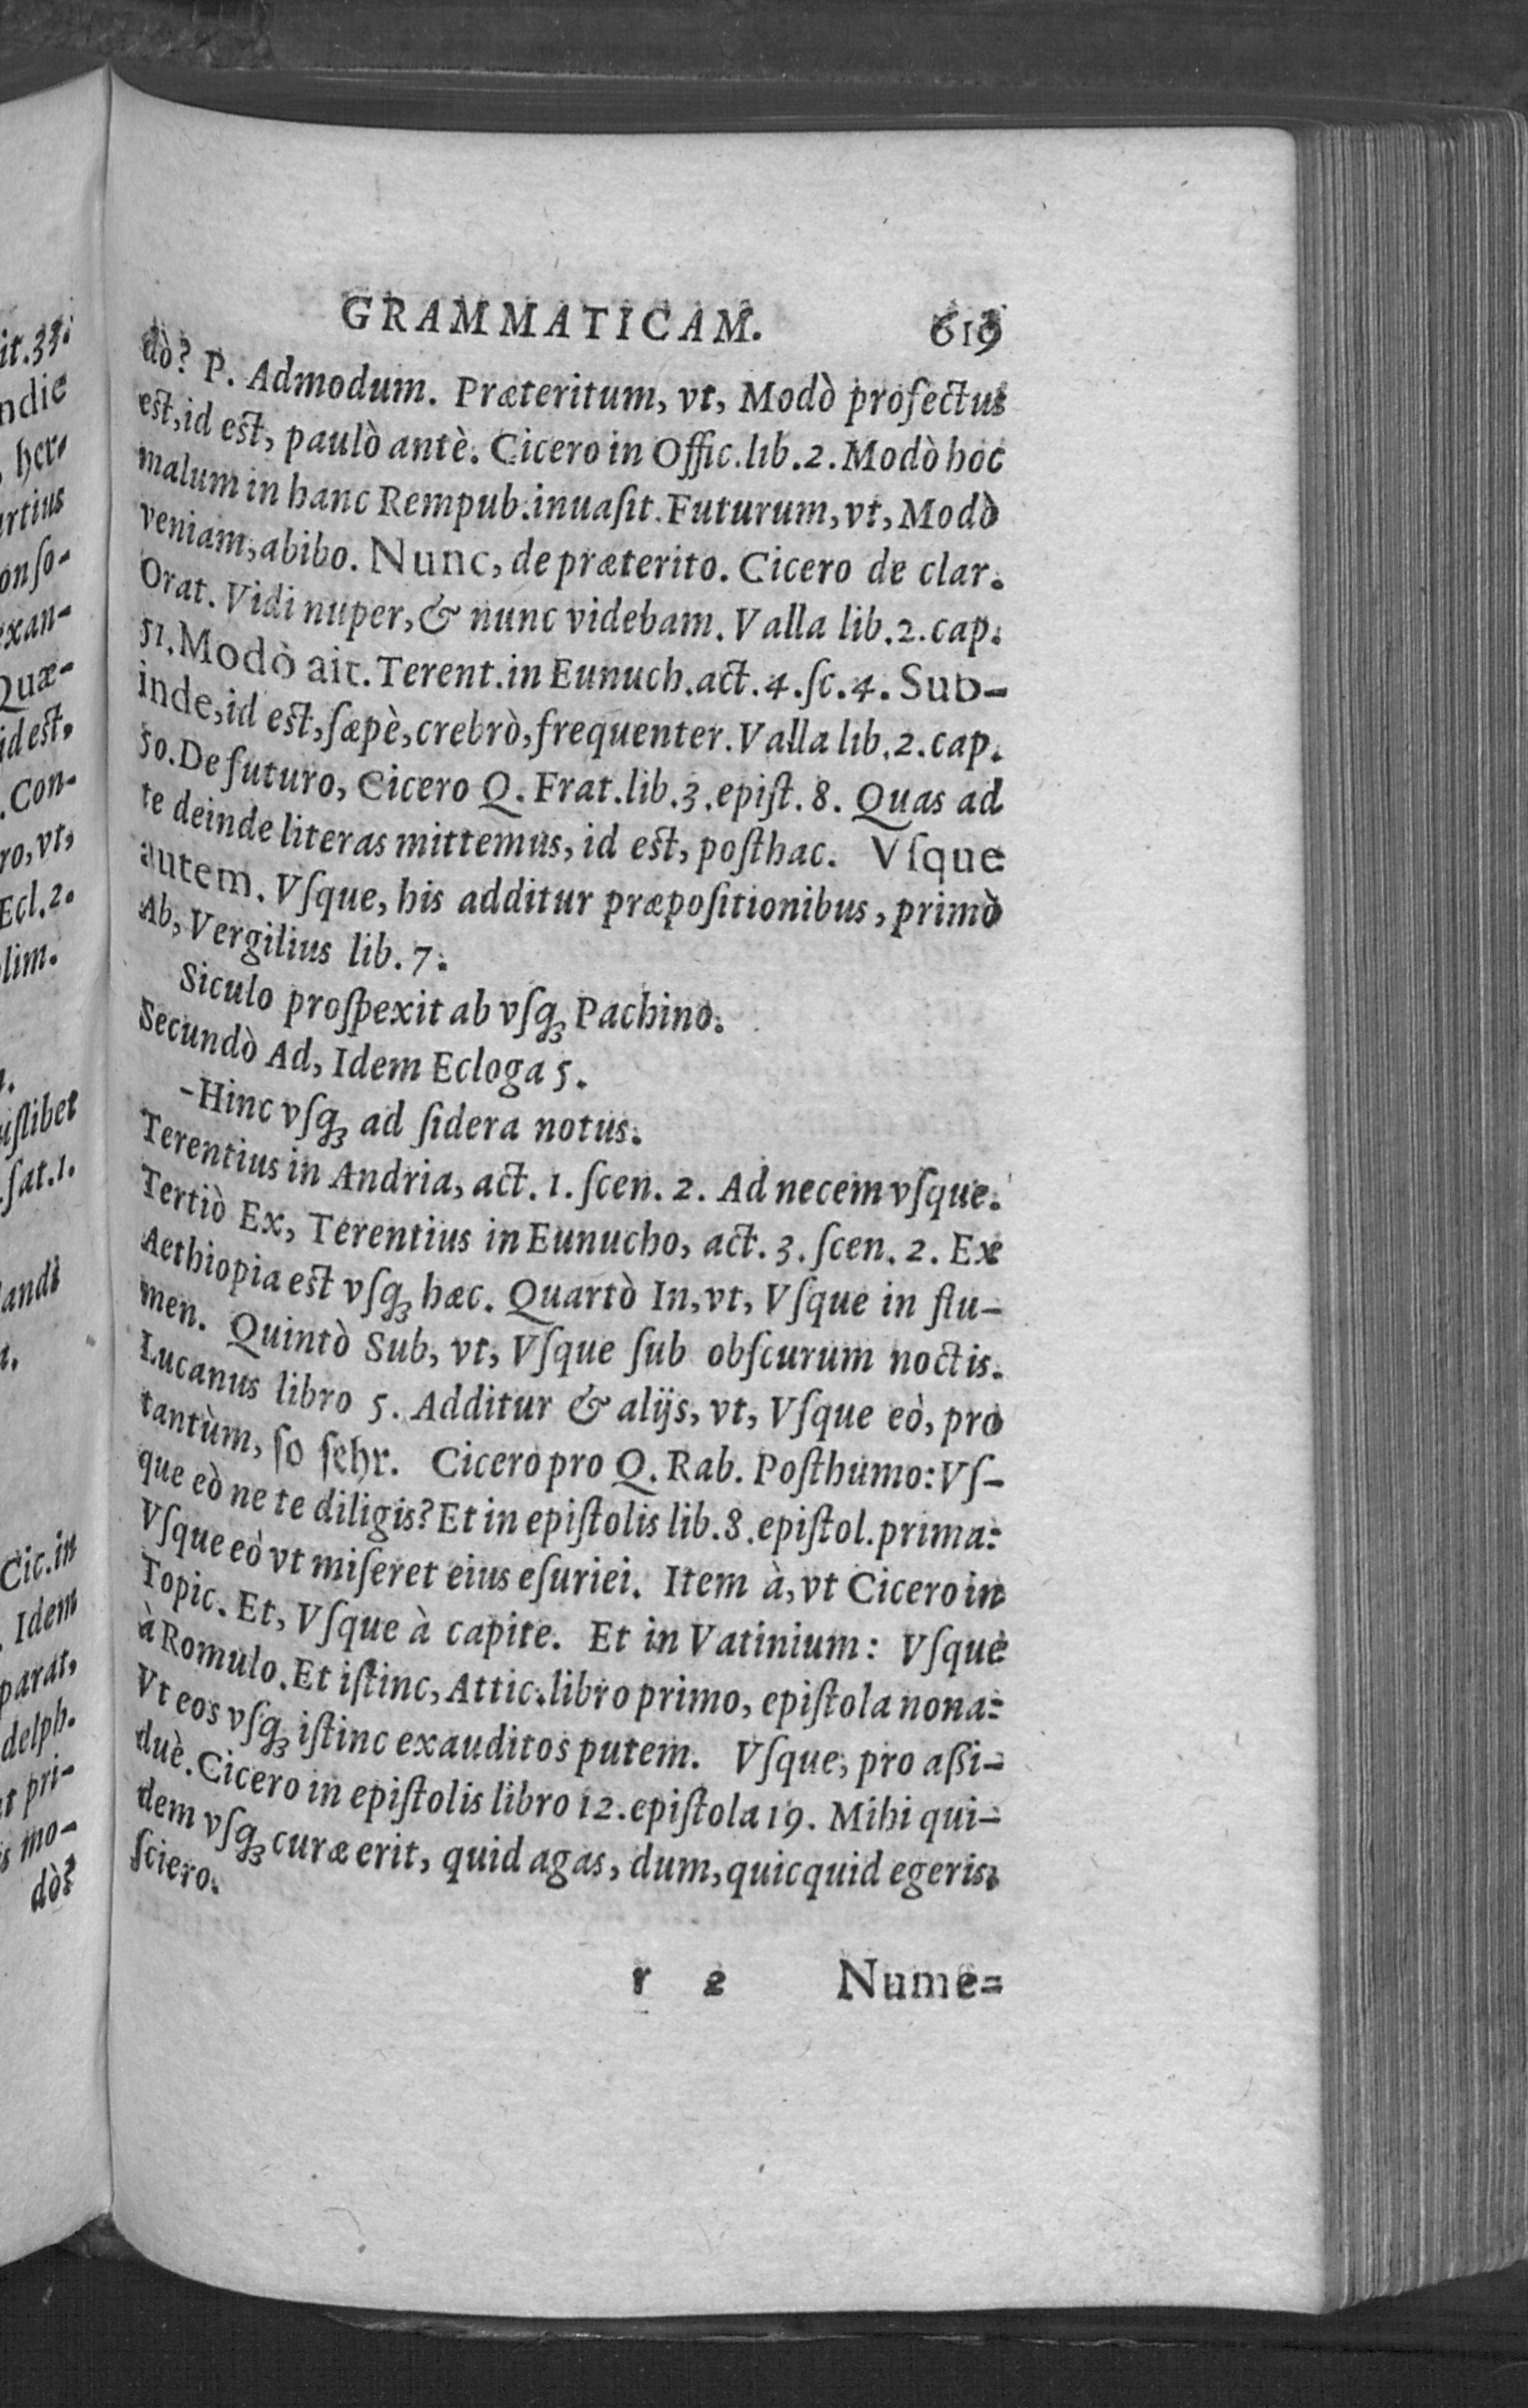 GRAMMATICAM. 619
dò? P. Admodum. Præteritum, vt, Modò profectus
est, id est, paulò antè. Cicero in Offic. lib. 2. Modò hoc
malum in hanc Rempub. inuaſit. Futurum, vt, Modò
veniam, abibo. Nunc, de præterito. Cicero de clar.
Orat. Vidi nuper, & nunc videbam. Valla lib. 2. cap.
51. Modò ait. Terent. in Eunuch. act. 4. ſc. 4. Sub-
inde, id est, ſæpè, crebrò, frequenter. Valla lib. 2. cap.
50. De futuro, Cicero Q. Frat. lib. 3. epiſt. 8. Quas ad
te deinde literas mittemus, id est, poſthac. Vſque
autem. Vſque, his additur præpoſitionibus, primò
Ab, Vergilius lib. 7.
Siculo proſpexit ab vſq₃ Pachino.
Secundò Ad, Idem Ecloga 5.
-Hinc vſq₃ ad ſidera notus.
Terentius in Andria, act. 1. ſcen. 2. Ad necem vſque.
Tertiò Ex, Terentius in Eunucho, act. 3. ſcen. 2. Ex
Aethiopia est vſq₃ hæc. Quartò In, vt, Vſque in flu-
men. Quintò Sub, vt, Vſque ſub obſcurum noctis.
Lucanus libro 5. Additur & alijs, vt, Vſque eò, pro
tantùm, ſo ſehr. Cicero pro Q. Rab. Poſthumo: Vſ-
que eò ne te diligis? Et in epiſtolis lib. 8. epiſtol. prima:
Vſque eò vt miſeret eius eſuriei. Item à, vt Cicero in
Topic. Et, Vſque à capite. Et in Vatinium: Vſque
à Romulo. Et iſtinc, Attic. libro primo, epiſtola nona:
Vt eos vſq₃ iſtinc exauditos putem. Vſque, pro aßi-
duè. Cicero in epiſtolis libro 12. epiſtola 19. Mihi qui-
dem vſq₃ curæ erit, quid agas, dum, quicquid egeris,
ſciero.
r 2 Nume=
it. 33.
ndie
her-
rtius
onſo-
exan-
Quæ-
id est,
. Con-
ro, vt,
Ecl. 2.
lim.
iſlibet
ſat. 1.
andi
Cic. in
. Idem
parat,
delph.
t pri-
s mo-
dò?